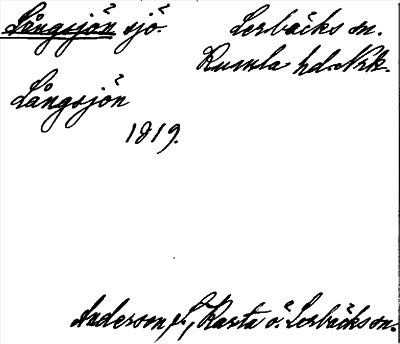 Långsjön sjö. Lerbäcks sn.
Kumla hd. Nrk.
Långsjön
1819.
Anderson, F., Karta ö. Lerbäcks sn.